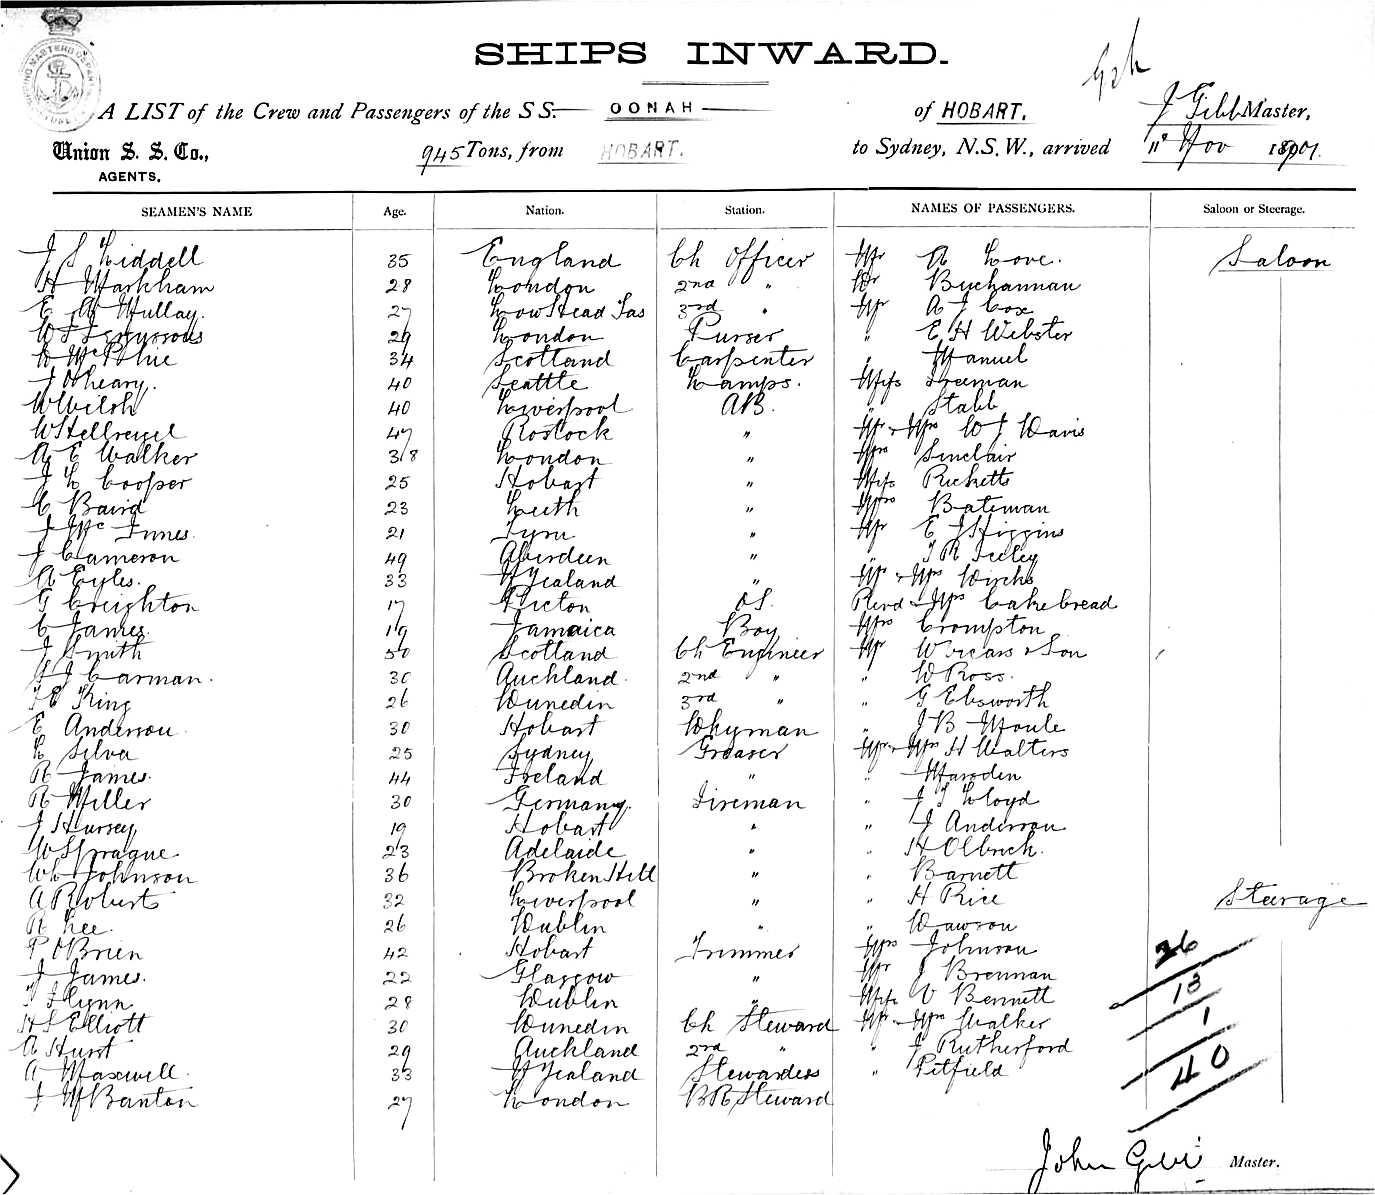 SHIPS INWARD.
A LIST of the Crew and Passengers of the S S. OONAH of HOBART, J Gibb Master,
Union S. S. Co., AGENTS. 945 Tons, from HOBART. to Sydney, N.S.W., arrived 11th Nov 1901.
SEAMEN'S NAME Age. Nation. Station. NAMES OF PASSENGERS. Saloon or Steerage.
J S Liddell 35 England Ch Officer Mr A Love. Saloon
H Markham 28 London 2nd " Dr Buchannan
E A Mullay. 27 Low Head Tas 3rd " Mr A J Cox
29 London Purser " E H Webster
34 Scotland Carpenter " Manuel
J Oheary. 40 Seattle Lamps. Miss Freeman
W Welsh 40 Liverpool AB. " Stabb
W Hellreigel 47 Rostock " Mr & Mrs W J Davis
A E Walker 38 London " Mrs Sinclair
J L Cooper 25 Hobart " Miss Ricketts
C Baird 23 Leith " Mrs Bateman
J Mc Innes. 21 " Mr E J Higgins
J Cameron 49 Aberdeen " "
A Eyles. 33 N Zealand " Mr & Mrs
G Creighton 17 Picton OS. Revd & Mrs Cakebread
C James. 19 Jamaica Boy Mrs Crompton
J Smith 50 Scotland Ch Engineer Mr & Son
S J Carman. 30 Auckland. 2nd " " W Ross.
King 26 Dunedin 3rd " " G Ebsworth
E Anderson. 30 Hobart Dkyman " J B Moule
L Silva 25 Sydney Greaser Mr & Mrs H Walters
R James. 44 Ireland " " Marsden
R Miller 30 Germany. Fireman " J S Lloyd
J Hursey 19 Hobart " " J Anderson
W Sprague 23 Adelaide " " H Olbrich.
Johnson 36 Broken Hill " " Barnett
A Roberts 32 Liverpool " " H Rice Steerage
R Lee. 26 Dublin " " Dawson
P. O'Brien 42 Hobart Trimmer Mrs Johnson 26
J James. 22 Glasgow " Mr J Brennan 13
Flynn 28 Dublin " Miss V Bennett
H S Elliott 30 Dunedin Ch Steward Mr & Mrs Walker 1
A Hurst 29 Auckland 2nd " " J Rutherford
A Maxwell. 33 N Zealand Stewardess " Pitfield 40
J McBanton 27 London BR Steward
John Gibb Master.